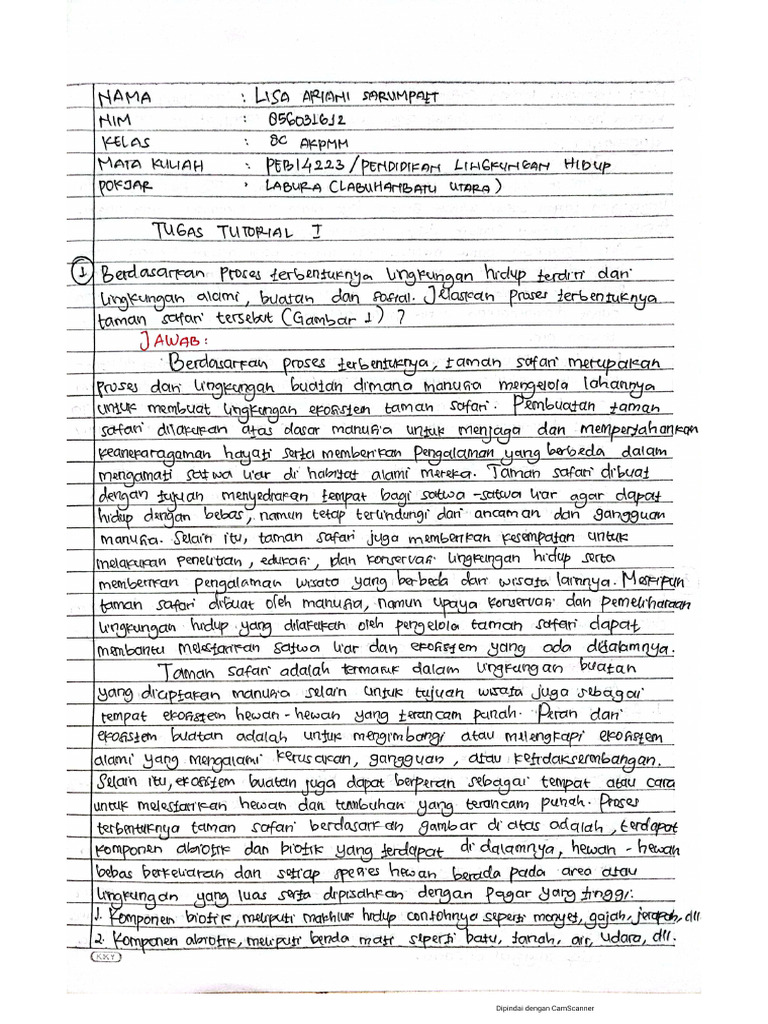 NAMA : LISA ARIANI SARUMPAET
NIM : 856031612
KELAS : 8C AKPMM
MATA KULIAH : PEBI4223/PENDIDIKAN LINGKUNGAN HIDUP
POKJAR : LABURA (LABUHANBATU UTARA)
TUGAS TUTORIAL I
1 Berdasarkan Proses terbentuknya lingkungan hidup terdiri dari
lingkungan alami, buatan dan sosial. Jelaskan proses terbentuknya
taman safari tersebut (Gambar 1) ?
JAWAB:
Berdasarkan proses terbentuknya, taman safari merupakan
proses dari lingkungan buatan dimana manusia mengelola lahannya
untuk membuat lingkungan ekosistem taman safari. Pembuatan taman
safari dilakukan atas dasar manusia untuk menjaga dan mempertahankan
keanekaragaman hayati serta memberikan Pengalaman yang berbeda dalam
mengamati satwa liar di habitat alami mereka. Taman safari dibuat
dengan tujuan menyediakan tempat bagi satwa-satwa liar agar dapat
hidup dengan bebas, namun tetap terlindungi dari ancaman dan gangguan
manusia. Selain itu, taman safari juga memberikan kesempatan untuk
melakukan penelitian, edukasi, dan konservasi lingkungan hidup serta
memberikan pengalaman wisata yang berbeda dari wisata lainnya. Meskipun
taman safari dibuat oleh manusia, namun upaya konservasi dan pemeliharaan
lingkungan hidup yang dilakukan oleh pengelola taman safari dapat
membantu melestarikan satwa liar dan ekosistem yang ada didalamnya.
Taman safari adalah termasuk dalam lingkungan buatan
yang diciptakan manusia selain untuk tujuan wisata juga sebagai
tempat ekosistem hewan-hewan yang terancam punah. Peran dari
ekosistem buatan adalah untuk mengimbangi atau melengkapi ekosistem
alami yang mengalami kerusakan, gangguan, atau ketidakseimbangan.
Selain itu, ekosistem buatan juga dapat berperan sebagai tempat atau cara
untuk melestarikan hewan dan tumbuhan yang terancam punah. Proses
terbentuknya taman safari berdasarkan gambar di atas adalah, terdapat
komponen abiotik dan biotik yang terdapat di dalamnya, hewan-hewan
bebas berkeliaran dan setiap spesies hewan berada pada area atau
lingkungan yang luas serta dipisahkan dengan Pagar yang tinggi:
1. Komponen biotik, meliputi makhluk hidup contohnya seperti monyet, gajah, jerapah, dll
2. Komponen abiotik, meliputi benda mati seperti batu, tanah, air, udara, dll.
KKY
Dipindai dengan CamScanner